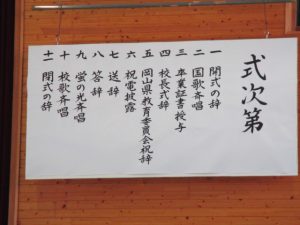 式次第
一 開式の辞
二 国歌斉唱
三 卒業証書授与
四 校長式辞
五 岡山県教育委員会祝辞
六 祝電披露
七 送辞
八 答辞
九 蛍の光斉唱
十 校歌斉唱
十一 閉式の辞